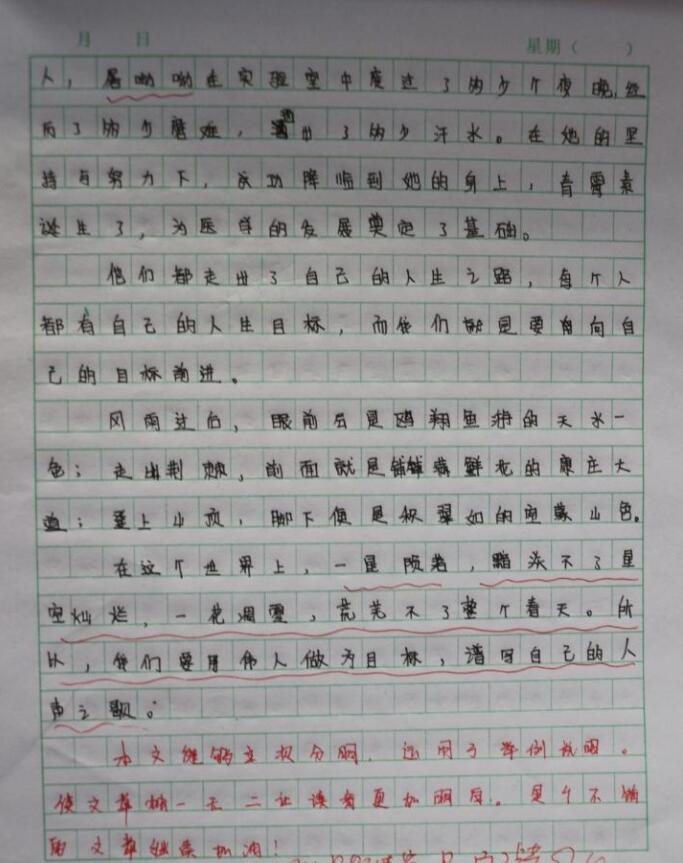 月 日 星期（ ）
人，屠呦呦在实验室中度过了多少个夜晚,经
历了多少磨难，洒出了多少汗水。在她的坚
持与努力下，成功降临到她的身上，青霉素
诞生了，为医学的发展奠定了基础。
他们都走出了自己的人生之路，每个人
都有自己的人生目标，而他们都是要自向自
己的目标前进。
风雨过后，眼前会是鸥翔鱼游的天水一
色；走出荆棘，前面就是铺满鲜花的康庄大
道；登上山顶，脚下便是积翠如的空蒙山色。
在这个世界上，一星陨落，黯淡不了星
空灿烂，一花凋零，荒芜不了整个春天。所
以，我们要用伟人做为目标，谱写自己的人
声之歌。
本文能够主次分明，运用了举例说明。
使文章 一 二让读者更加明了。是个不错
的文章继续加油！